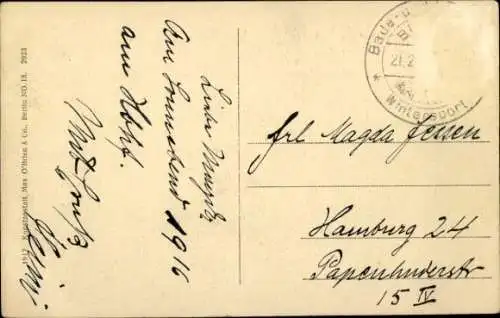 Liebe Magda
Am Sonnabend 1916
am Hbhf.
Mit Gruß
1917 Kunstanstalt, Max O'Brien & Co., Berlin NO.18. 2923
21.2
Wintersport
Frl Magda Jessen
Hamburg 24
Papenhuderstr
15 IV